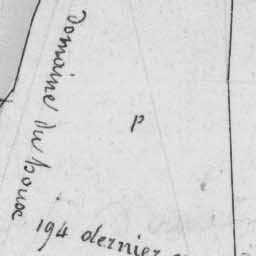 domaine du boux
p
194 dernier